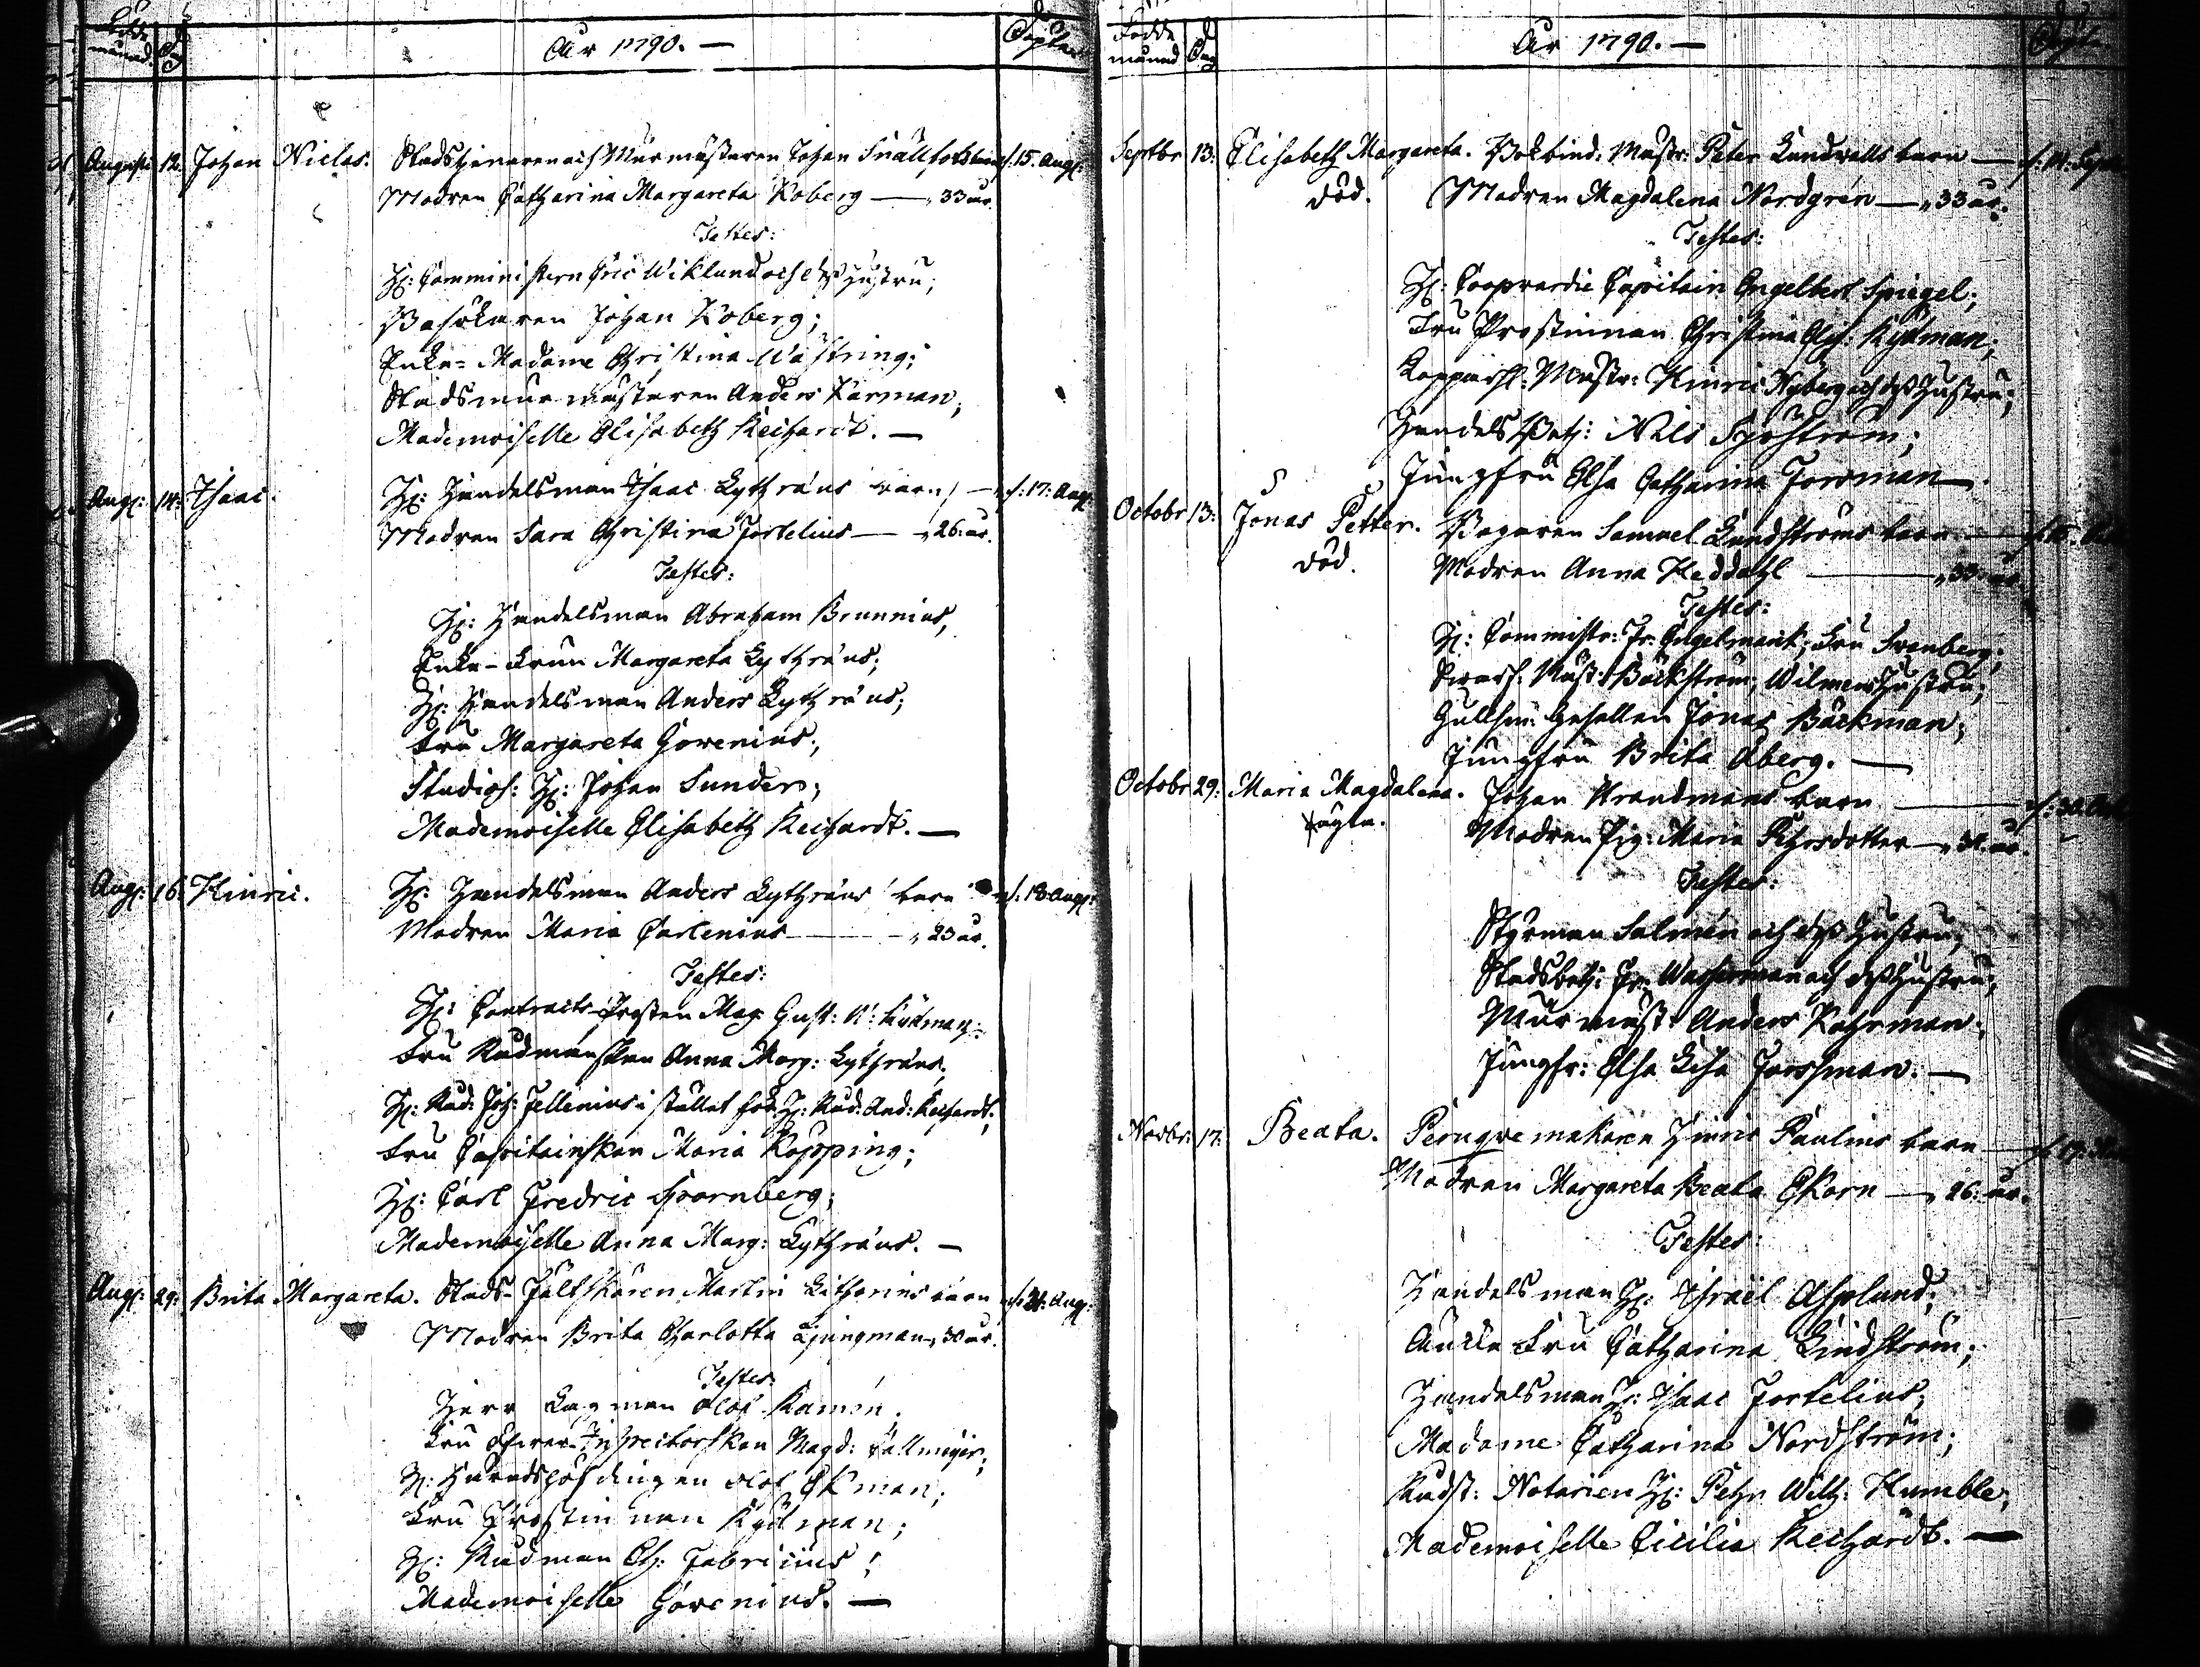 Födde månad. Dag
År 1790. —
Döpte
Augusti 12. Johan Niclas. Stadstjenaren och Murmästaren Johan Snällfots barn d. 15. Aug:
Modren Catharina Margareta Koberg — 33 år.
Testes:
H: Comministern Eric Wiklund och dess hustru;
Johan Koberg;
Enke-Madame Christina Wästring;
Stadsmurmästaren Anders Karman;
Mademoiselle Elisabeth Reichardt. —
Aug: 14. Isaac. H: Handelsman Isaac Lythræus barn — d. 17. Aug:
Modren Sara Christina Fortelius — 26. år.
Testes:
H: Handelsman Abraham Brunnius,
Enke-Frun Margareta Lythræus;
H: Handelsman Anders Lythræus;
Fru Margareta Govenius;
Studios: H: Johan Sunder;
Mademoiselle Elisabeth Reichardt. —
Aug: 16. Hinric. H: Handelsman Anders Lythræus barn d. 18. Aug:
Modren Maria Carlenius — 23 år.
Testes:
H: Contracts-Prosten Mag. Gust:
Fru Rådmanskan Anna Marg: Lythræus,
H: Råd: Joh: Jellenius i stället för H: Råd: And: Reichardt;
Fru Capitainskan Maria Köpping;
H: Carl Fredric Spornberg;
Mademoiselle Anna Marg: Lythræus. —
Aug: 29. Brita Margareta. Stads-Fältskären Martin Lithorins barn d. 31. Aug:
Modren Brita Charlotta Ljungman, 30 år.
Testes:
Herr Lagman Olof Ramén;
Fru Inspectorskan Magd:
H: Häradshöfdingen Olof Ekman;
Fru Prostinnan Rydman;
H: Rådman Ch: Fabricius;
Mademoiselle Govenius. —
Födde månad Dag
År 1790. —
Septbr 13. Elisabeth Margareta. Bokbind: Mästr: Peter Lundvalls barn — d. 14. Septr
död. Modren Magdalena Nordgrén — 33 år.
Testes:
H: Coopvardie Capitain Engelbert Spiegel;
Fru Prostinnan Christina Elis: Rydman;
Kopparsl: Mästr: Hinric Nyberg och dess Hustru;
Handels Betj: Nils Sjöström;
Jungfru Elsa Catharina Forsman —.
Octobr 13. Jonas Petter. Bagaren Samuel Lundströms barn —
död. Modren Anna Heddahl — 33 år.
Testes:
H: Commiss: Fr: Engelmark; Fru Svanberg;
Mäst: Bäckström; Wilmers Hustru;
Gullsm: Gesällen Jonas Bäckman;
Jungfru Brita Åberg. —
Octobr 29. Maria Magdalena. Johan Strandmans barn — d. 30. Oct
oägta. Modren Pig: Maria Pehrsdotter —
Testes:
Styrman Salmén och dess Hustru;
Stadsbetj: Wasserman och dess Hustru;
Murmäst: Anders Kahrman;
Jungfr: Elsa Lisa Forssman. —
Novbr: 17. Beata. Peruquemakaren Hinric Paulins barn —
Modren Margareta Beata Ekorn — 26. år.
Testes:
Handelsman H: Israël Asplund;
Enke Fru Catharina Lindström;
Handelsman H: Isaac Fortelius;
Madame Catharina Nordström;
Rådst: Notarien H: Pehr Wilh: Humble;
Mademoiselle Cicilia Reichardt. —